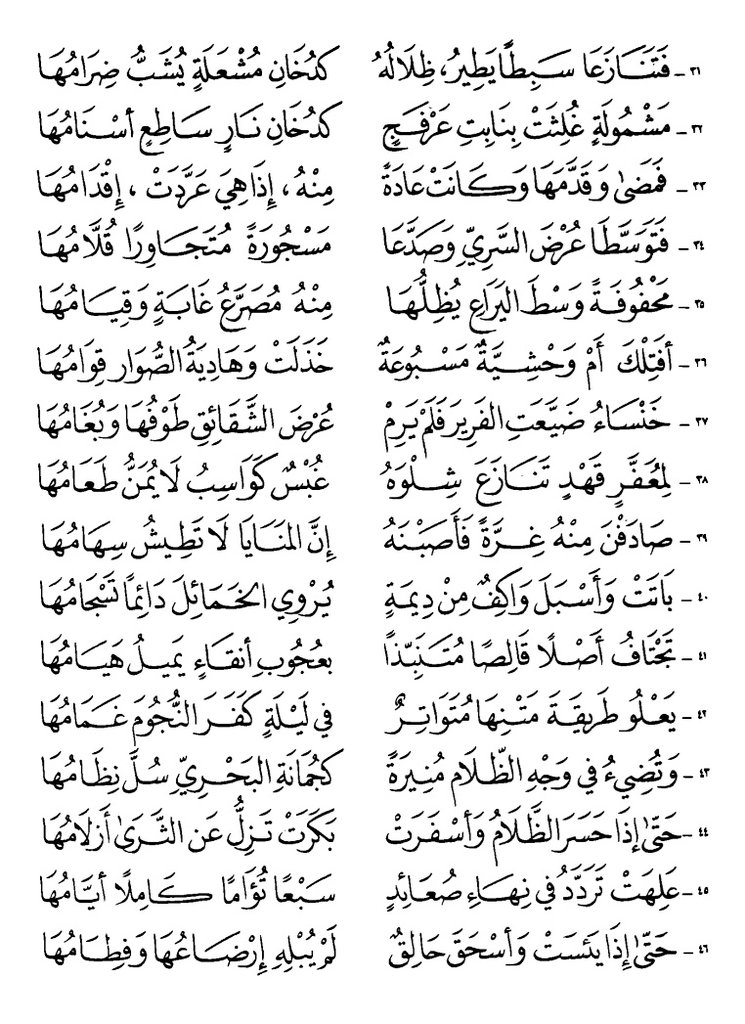 ٣١ - فَتَنَازَعَا سَبِطًا يَطِيرُ، ظِلَالُهُ كَدُخَانِ مُشْعَلَةٍ يُشَبُّ ضِرَامُهَا
٣٢ - مَشْمُولَةٍ غُلِثَتْ بِنَابِتِ عَرْفَجٍ كَدُخَانِ نَارٍ سَاطِعٍ أَسْنَامُهَا
٣٣ - فَمَضَىٰ وَقَدَّمَهَا وَكَانَتْ عَادَةً مِنْهُ، إِذَا هِيَ عَرَّدَتْ، إِقْدَامُهَا
٣٤ - فَتَوَسَّطَا عُرْضَ السَّرِيِّ وَصَدَّعَا مَسْجُورَةً مُتَجَاوِرًا قُلَّامُهَا
٣٥ - مَحْفُوفَةً وَسْطَ اليَرَاعِ يُظِلُّهَا مِنْهُ مُصَرَّعُ غَابَةٍ وَقِيَامُهَا
٣٦ - أَفَتِلْكَ أَمْ وَحْشِيَّةٌ مَسْبُوعَةٌ خَذَلَتْ وَهَادِيَةُ الصُّوَارِ قِوَامُهَا
٣٧ - خَنْسَاءُ ضَيَّعَتِ الفَرِيرَ فَلَمْ يَرِمْ عُرْضَ الشَّقَائِقِ طَوْفُهَا وَبُغَامُهَا
٣٨ - لِمُعَفَّرٍ قَهْدٍ تَنَازَعَ شِلْوَهُ غُبْسٌ كَوَاسِبُ لَا يُمَنُّ طَعَامُهَا
٣٩ - صَادَفْنَ مِنْهُ غِرَّةً فَأَصَبْنَهُ إِنَّ المَنَايَا لَا تَطِيشُ سِهَامُهَا
٤٠ - بَاتَتْ وَأَسْبَلَ وَاكِفٌ مِنْ دِيمَةٍ يُرْوِي الخَمَائِلَ دَائِمًا تَسْجَامُهَا
٤١ - تَجْتَافُ أَصْلًا قَالِصًا مُتَنَبِّذًا بِعُجُوبِ أَنْقَاءٍ يَمِيلُ هَيَامُهَا
٤٢ - يَعْلُو طَرِيقَةَ مَتْنِهَا مُتَوَاتِرٌ فِي لَيْلَةٍ كَفَرَ النُّجُومَ غَمَامُهَا
٤٣ - وَتُضِيءُ فِي وَجْهِ الظَّلَامِ مُنِيرَةً كَجُمَانَةِ البَحْرِيِّ سُلَّ نِظَامُهَا
٤٤ - حَتَّىٰ إِذَا حَسَرَ الظَّلَامُ وَأَسْفَرَتْ بَكَرَتْ تَزِلُّ عَنِ الثَّرَىٰ أَزْلَامُهَا
٤٥ - عَلِهَتْ تَرَدَّدُ فِي نِهَاءِ صُعَائِدٍ سَبْعًا تُؤَامًا كَامِلًا أَيَّامُهَا
٤٦ - حَتَّىٰ إِذَا يَئِسَتْ وَأَسْحَقَ حَالِقٌ لَمْ يُبْلِهِ إِرْضَاعُهَا وَفِطَامُهَا